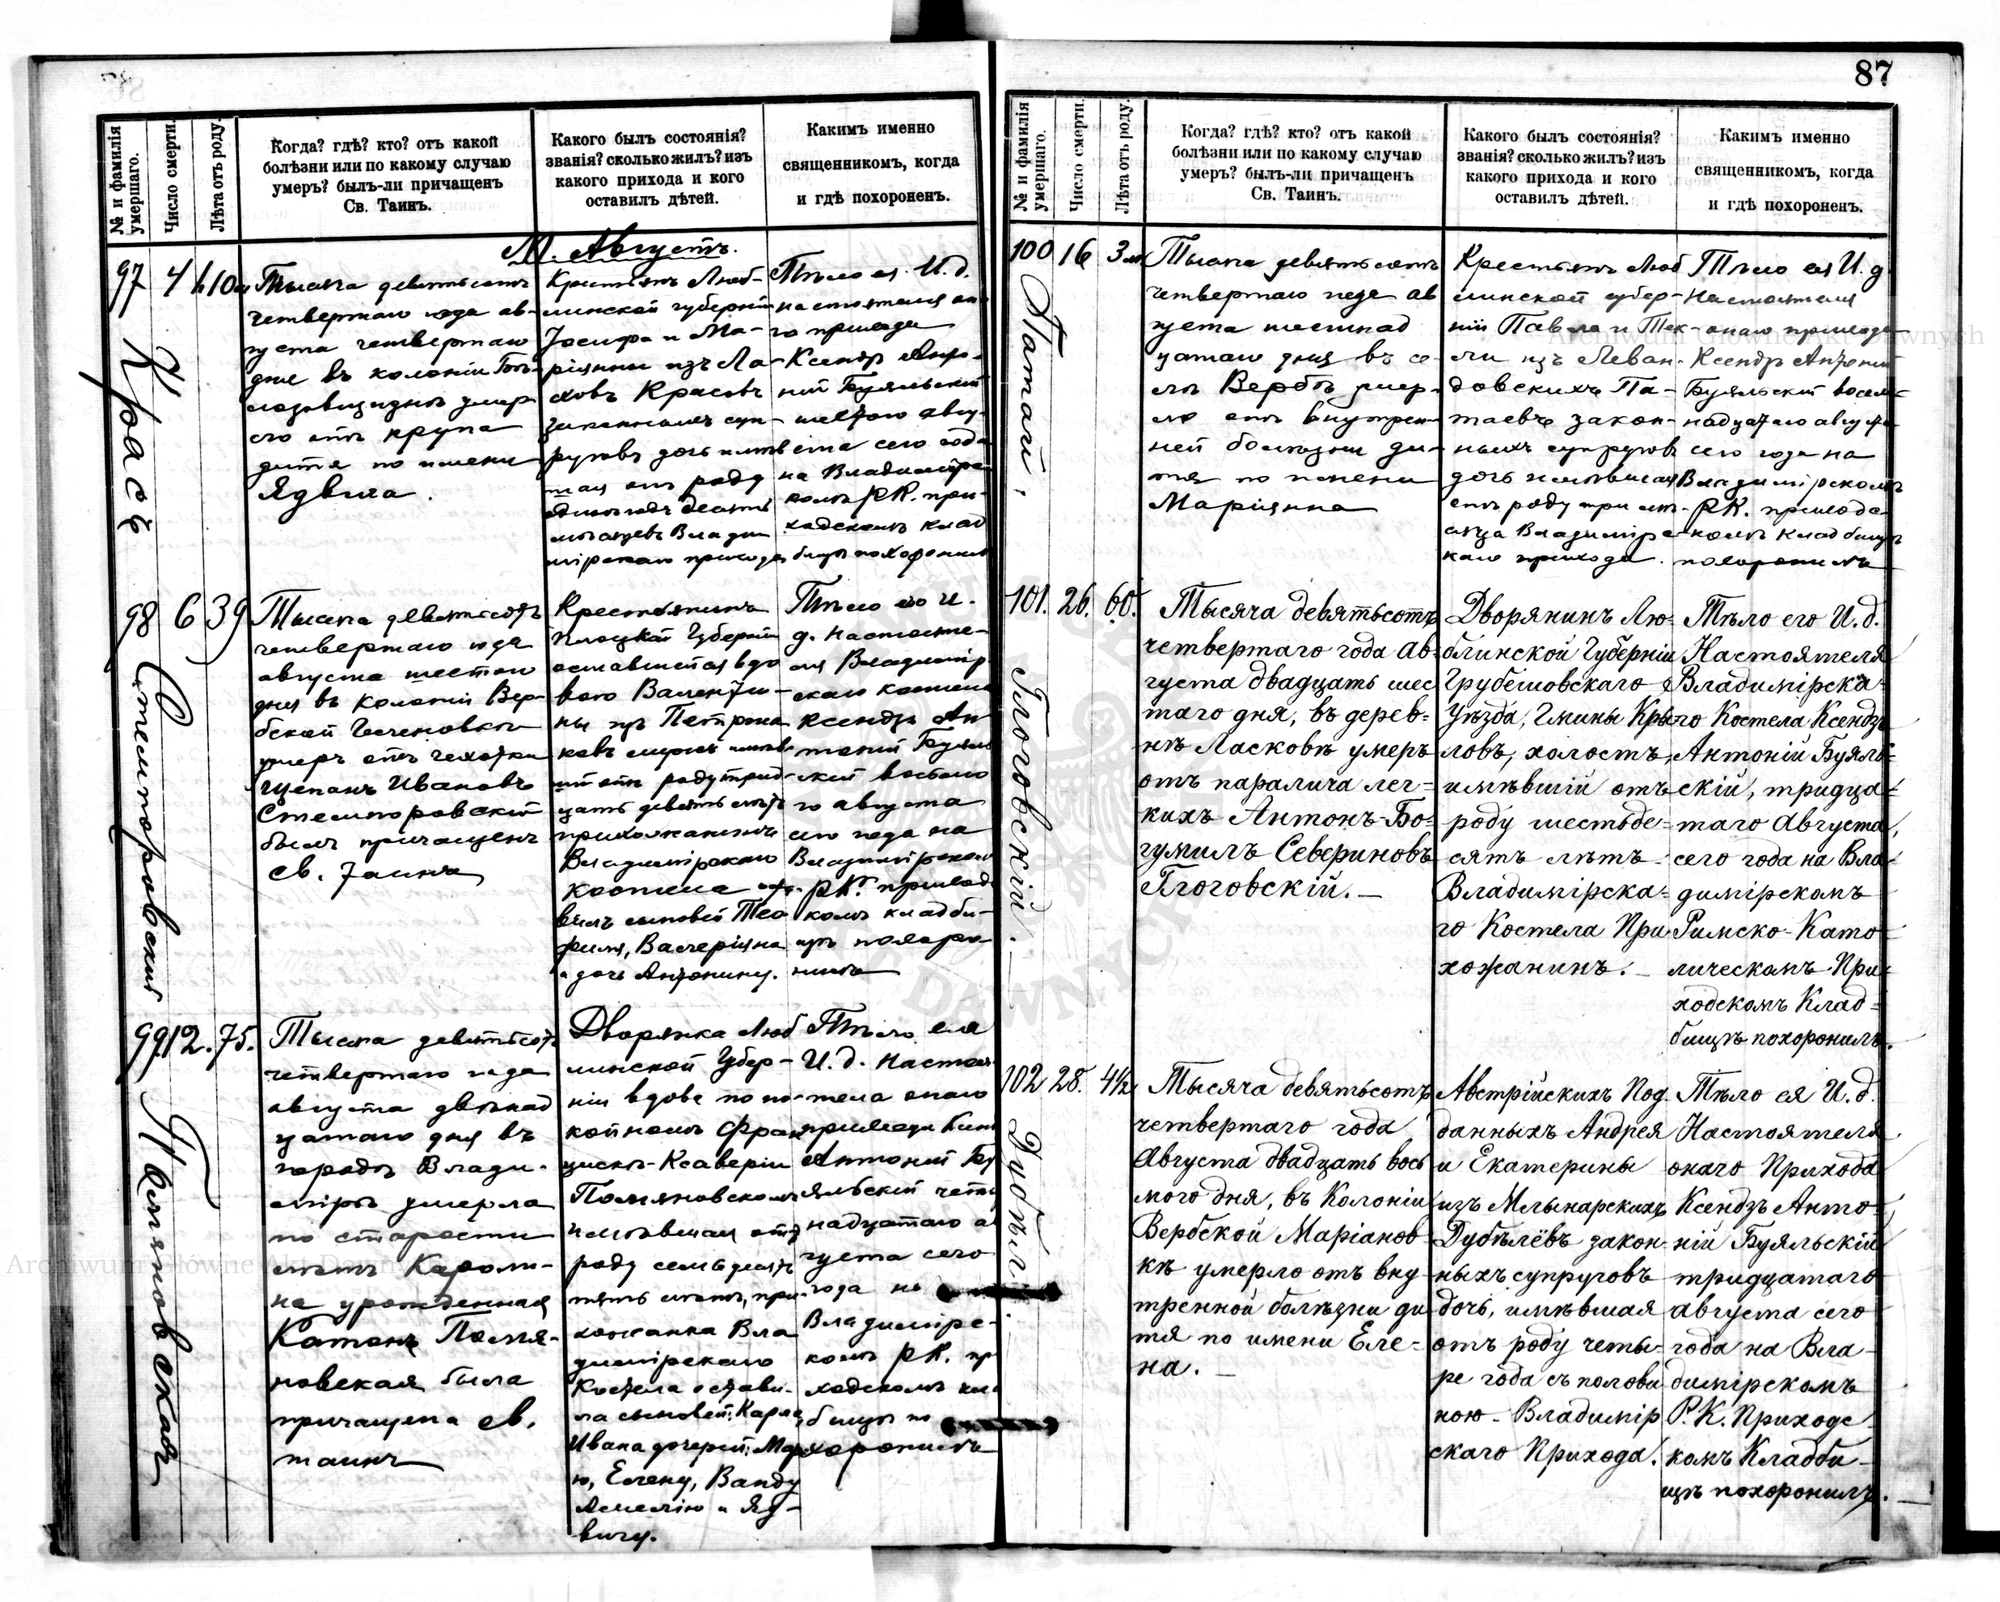 87
№ и фамилія умершаго.
Число смерти.
Лѣта отъ роду.
Когда? гдѣ? кто? отъ какой
болѣзни или по какому случаю
умеръ? былъ-ли причащенъ
Св. Таинъ.
Какого былъ состоянія?
званія? сколько жилъ? изъ
какого прихода и кого
оставилъ дѣтей.
Какимъ именно
священникомъ, когда
и гдѣ похороненъ.
М. Августъ.
97
4
Красъ
Тысяча девятьсотъ
четвертаго года ав-
густа четвертаго
дня въ колоніи
умер
ло отъ крупа
дитя по имени
Ядвига.
Крестьянъ Люб-
линской губерніи
Іосифа и Ма-
ріянны изъ Ла-
ховъ Красовъ
законныхъ суп-
руговъ дочь имѣв
шая отъ роду
одинъ годъ десять
мѣсяцевъ Влади
мірскаго прихода
Тѣло ея И. д.
настоятеля она
го прихода
Ксендзъ Анто-
ній Буяльскій
шестого авгу-
ста сего года
на Владимірс
комъ РК. при-
ходскомъ клад
бищѣ похоронилъ
98
6
39
Стемпоровскій
Тысяча девятьсотъ
четвертаго года
августа шестого
дня въ колоніи Вер-
бской
умеръ отъ чахотки
Щепанъ Ивановъ
Стемпоровскій
былъ причащенъ
св. Таинъ
Крестьянинъ
Плоцкой Губерніи
оставшейся вдо
вою Валенти-
ны изъ Петрона
ковъ имѣв
шій отъ роду трид-
цать девять лѣтъ
прихожанинъ
Владимірскаго
костела оста-
вилъ сыновей Тео
филя, Валеріяна
и дочь Антонину.
Тѣло его И.
д. Настояте-
ля Владимір
скаго костела
Ксендзъ Ан
тоній Буяль
скій восьмо
го августа
сего года на
Владимірском
РК. приход
комъ кладби-
щѣ похоро-
нилъ
99
12.
75.
Помяновская
Тысяча девятьсотъ
четвертаго года
августа двѣнад
цатаго дня въ
городѣ Влади-
мірѣ умерла
по старости
лѣтъ Кароли-
на урожденная
Катонъ Помя-
новская была
причащена св.
таинъ
Дворянка Люб
линской Губер-
ніи вдова по по-
койномъ Фран
цискѣ-Ксаверіи
Помяновскомъ
имѣвшая отъ
роду семьдесятъ
пять лѣтъ, при-
хожанка Вла
димірскаго
Костела остави-
ла сыновей: Карла,
Ивана дочерей: Мар
ю, Елену, Ванду
Амелію и Яд-
вигу.
Тѣло ея
И. д. Настоя-
теля онаго
прихода Ксен
Антоній Бу
яльскій четы
надцатаго ав
густа сего
года на
Владимірс-
комъ РК. пр
ходскомъ кла
бищѣ по
хоронилъ
№ и фамилія умершаго.
Число смерти.
Лѣта отъ роду.
Когда? гдѣ? кто? отъ какой
болѣзни или по какому случаю
умеръ? былъ-ли причащенъ
Св. Таинъ.
Какого былъ состоянія?
званія? сколько жилъ? изъ
какого прихода и кого
оставилъ дѣтей.
Какимъ именно
священникомъ, когда
и гдѣ похороненъ.
100
16
3 м
Патай.
Тысяча девятьсотъ
четвертаго года ав
густа шестнад
цатаго дня въ се-
лѣ Вербѣ умер-
ло отъ внутрен-
ней болѣзни ди-
тя по имени
Маріянна
Крестьянъ Люб
линской губер-
ніи Павла и Тек-
ли изъ Леван-
довскихъ Па-
таевъ закон-
ныхъ супруговъ
дочь имѣвшая
отъ роду три мѣ-
сяца Владимірс-
каго прихода.
Тѣло ея И. д
Настоятеля
онаго прихода
Ксендзъ Антоній
Буяльскій восем-
надцатаго августа
сего года на
Владимірскомъ
РК. приходс-
комъ кладбищѣ
похоронилъ
101.
26.
60.
Глоговскій.
Тысяча девятьсотъ
четвертаго года Ав-
густа двадцать шес
таго дня, въ дерев-
нѣ Ласковѣ умеръ
отъ паралича лег-
кихъ Антонъ-Бо-
гумилъ Севериновъ
Глоговскій. —
Дворянинъ Лю-
блинской Губерніи
Грубешовскаго
Уѣзда, Гмины Кры-
ловъ, холостъ,
имѣвшій отъ
роду шестьде-
сятъ лѣтъ
Владимірска-
го Костела При
хожанинъ. -
Тѣло его И. д.
Настоятеля
Владимірска-
го Костела Ксендзъ
Антоній Буяль-
скій, тридца-
таго Августа,
сего года на Вла-
димірскомъ
Римско-Като-
лическомъ При-
ходскомъ Клад-
бищѣ похоронилъ.
102
28.
4½
Дубѣл
Тысяча девятьсотъ
четвертаго года
Августа двадцать вось
мого дня, въ Колоніи
Вербской Маріанов-
кѣ умерло отъ вну
тренной болѣзни ди
тя по имени Еле-
на. —
Австрійскихъ Под
данныхъ Андрея
и Екатерины
изъ Млынарскихъ
Дубѣлёвъ закон-
ныхъ супруговъ
дочь, имѣвшая
отъ роду четы-
ре года съ полови
ною - Владимір
скаго Прихода.
Тѣло ея И. д.
Настоятеля
онаго Прихода
Ксендзъ Анто-
ній Буяльскій
тридцатаго
августа сего
года на Вла-
димірскомъ
Р. К. Приходс-
комъ Кладби-
щѣ похоронилъ.
Archiwum Główne Akt Dawnych